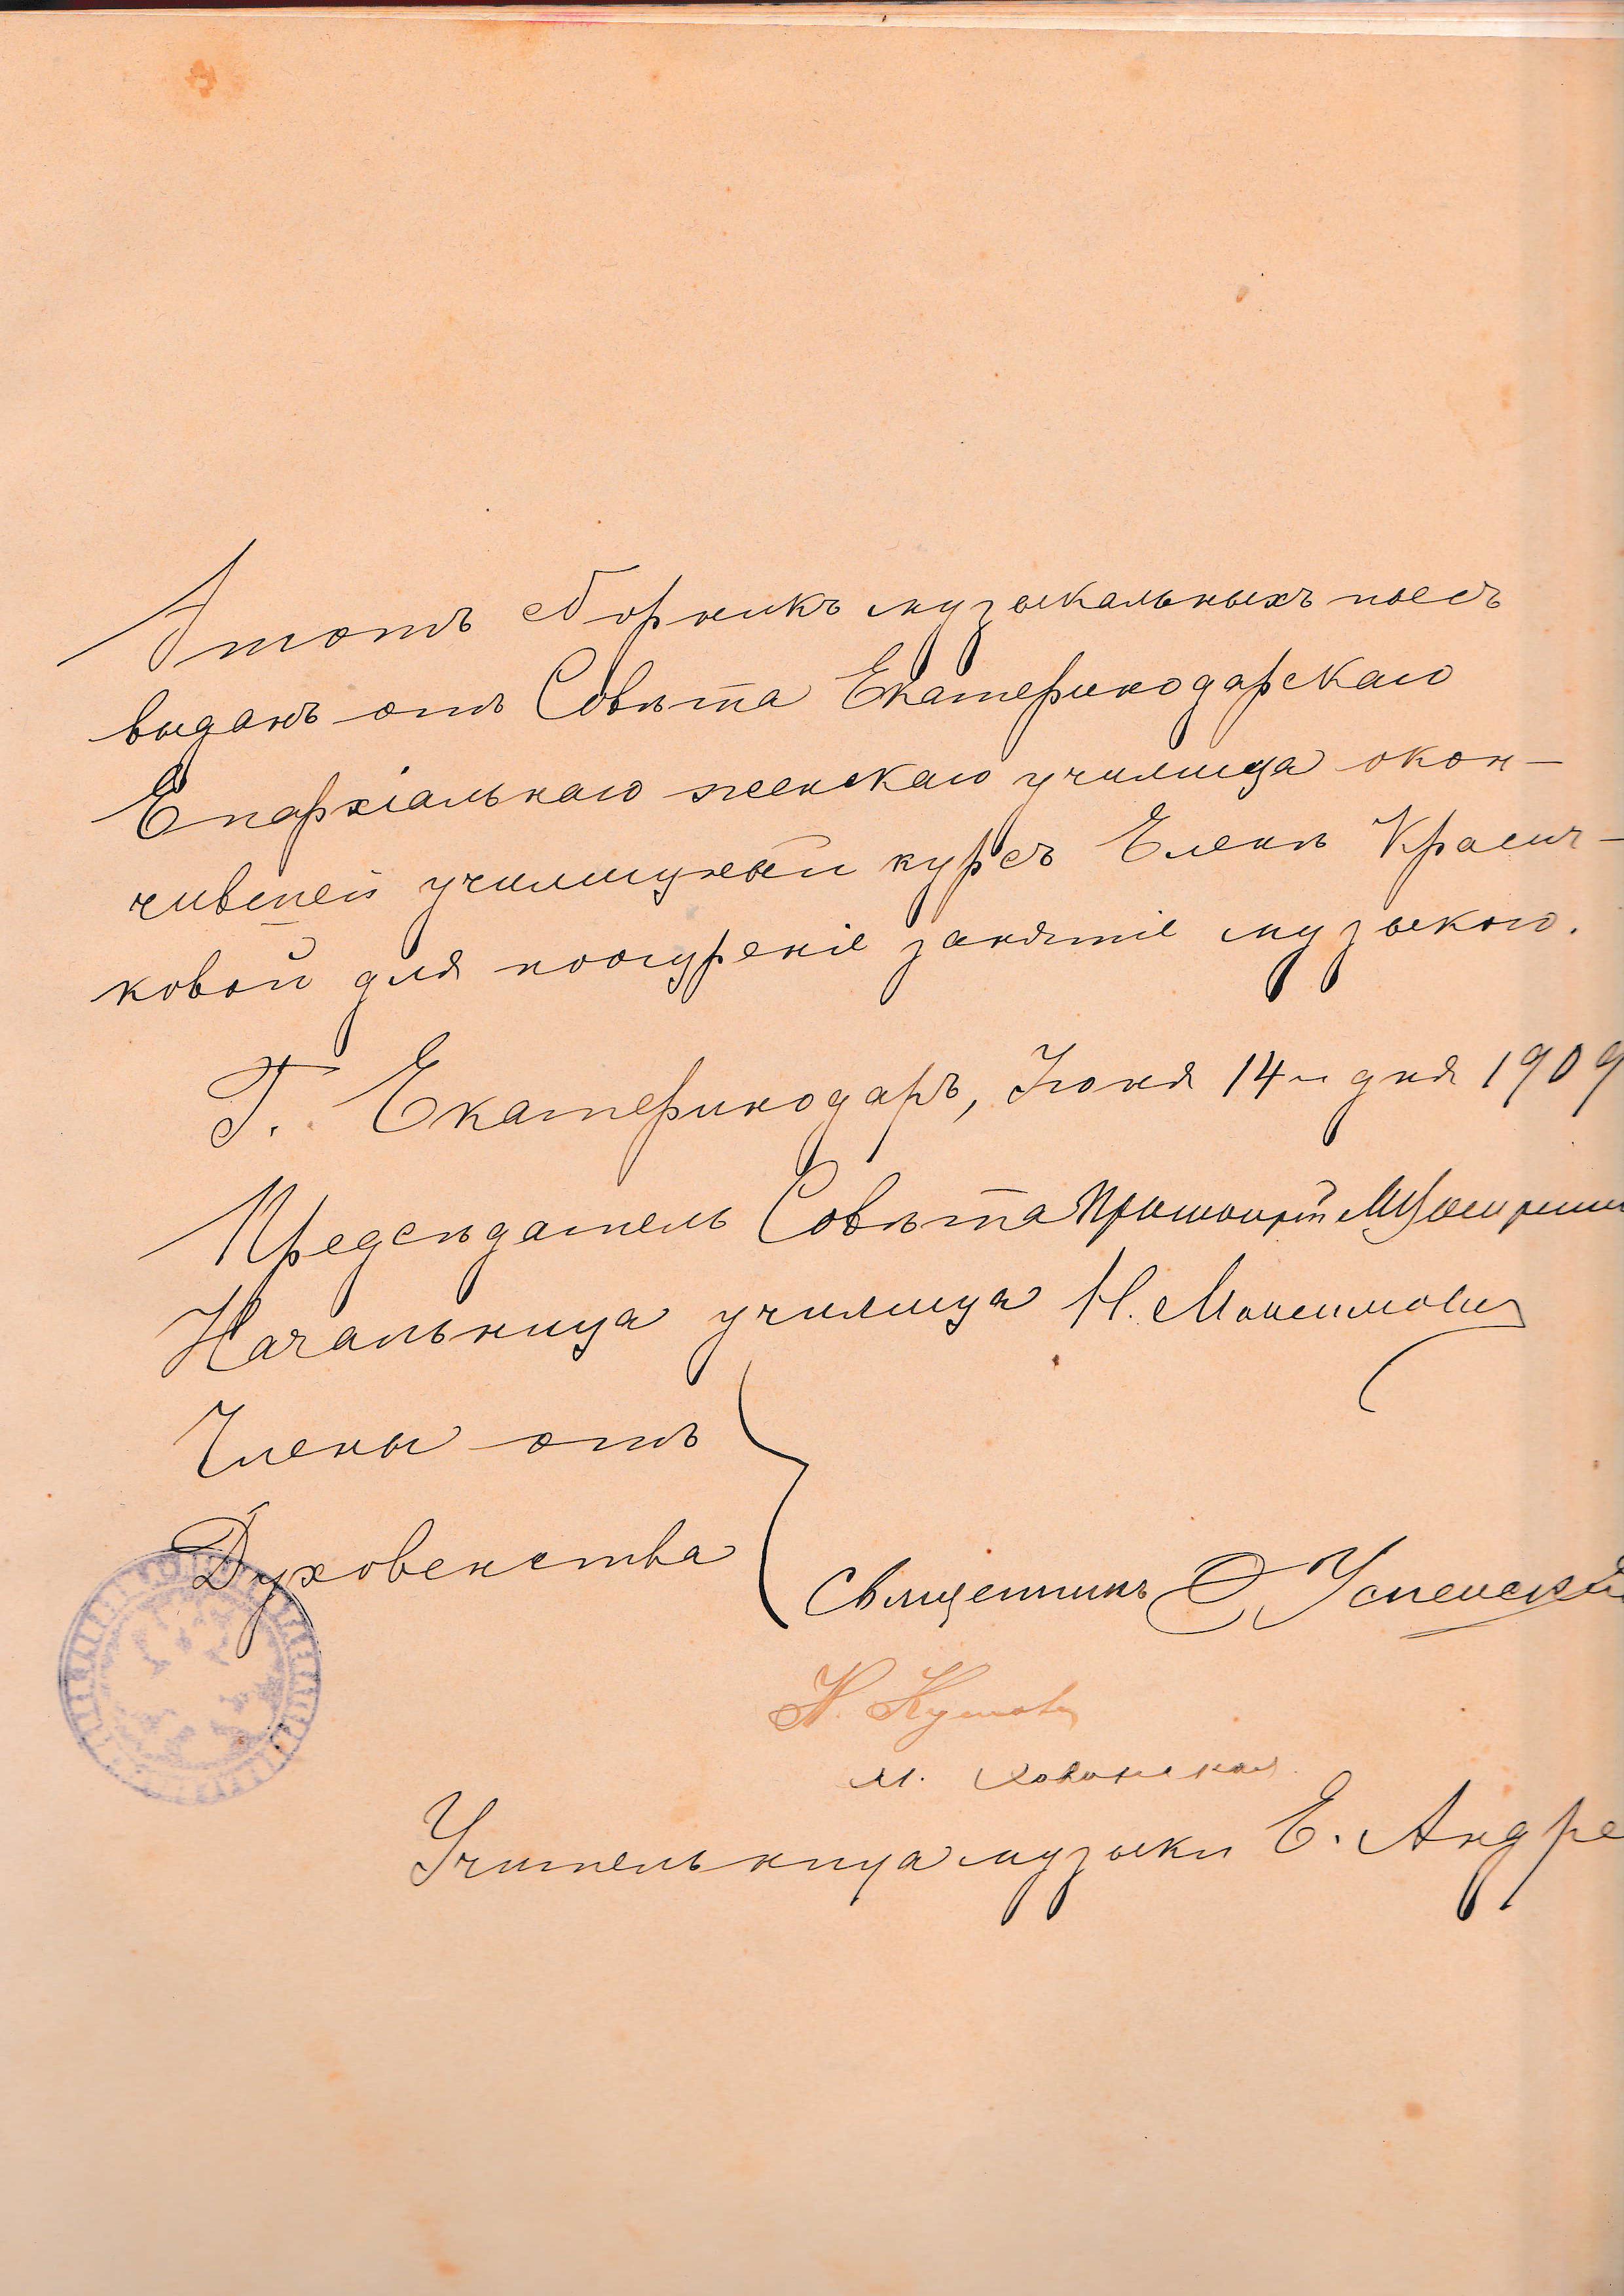 Этотъ сборникъ музыкальныхъ пьесъ
выданъ отъ Совѣта Екатеринодарскаго
Епархіальнаго женскаго училища окон-
чившей училищный курсъ Еленѣ Красич-
ковой для поощренія занятія музыкою.
Г. Екатеринодаръ, Іюня 14 дня 1909
Предсѣдатель Совѣта Протоіерей
Начальница училища Н.
Члены отъ
Духовенства
Священникъ Успенскій
Н.
М.
Учительница музыки Е. Андре